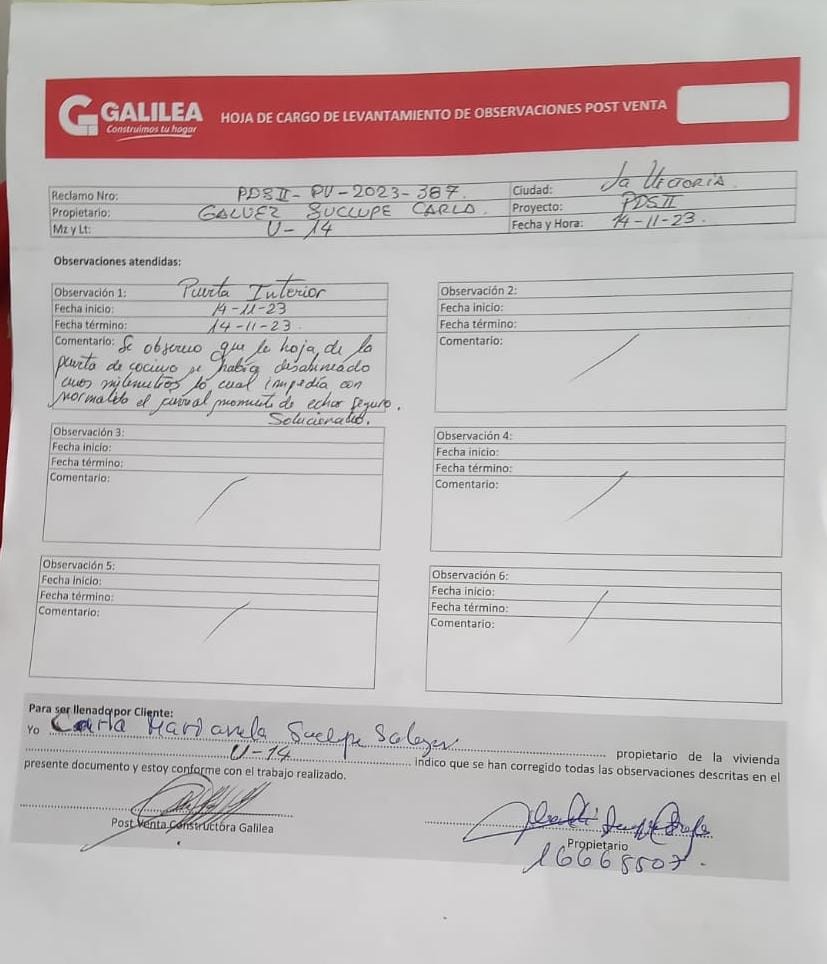 GALILEA
Construimos tu hogar
HOJA DE CARGO DE LEVANTAMIENTO DE OBSERVACIONES POST VENTA
Reclamo Nro: PDSII-PV-2023-387. Ciudad: La Victoria
Propietario: GALVEZ SUCLUPE CARLA. Proyecto: PDSII
Mz y Lt: U-14 Fecha y Hora: 14-11-23.
Observaciones atendidas:
Observación 1: Puerta Interior
Fecha inicio: 14-11-23
Fecha término: 14-11-23.
Comentario: Se observo que la hoja de la
puerta de cocina se había desalineado
unos milimetros lo cual impedía con
normalidad el al momento de echar seguro.
Solucionado.
Observación 2:
Fecha inicio:
Fecha término:
Comentario:
Observación 3:
Fecha inicio:
Fecha término:
Comentario:
Observación 4:
Fecha inicio:
Fecha término:
Comentario:
Observación 5:
Fecha inicio:
Fecha término:
Comentario:
Observación 6:
Fecha inicio:
Fecha término:
Comentario:
Para ser llenado por Cliente:
Yo Carla Marianela Suclupe propietario de la vivienda
U-14 indico que se han corregido todas las observaciones descritas en el
presente documento y estoy conforme con el trabajo realizado.
Post Venta Constructora Galilea
Propietario
16668507.